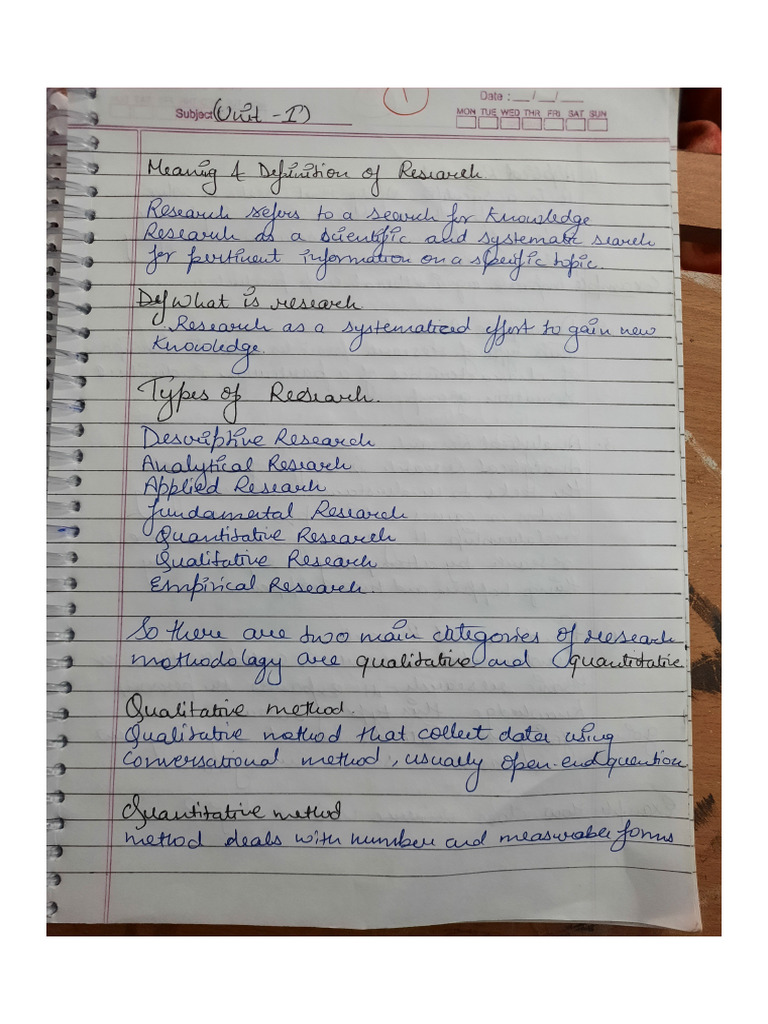 1
Date : __/__/__
Subject (Unit - I)
MON TUE WED THR FRI SAT SUN
Meaning & Definition of Research
Research refers to a search for knowledge
Research as a scientific and systematic search
for pertinent information on a specific topic.
What is research
Research as a systematiced effort to gain new
knowledge.
Types of Research.
Descriptive Research
Analytical Research
Applied Research
fundamental Research
Quantitative Research
Qualitative Research
Empirical Research.
So there are two main categories of research
mothodology are qualitative and quantitative
Qualitative method.
Qualitative method that collect data using
Conversational method, usually open-end question
Quantitative method
method deals with number and measurable forms